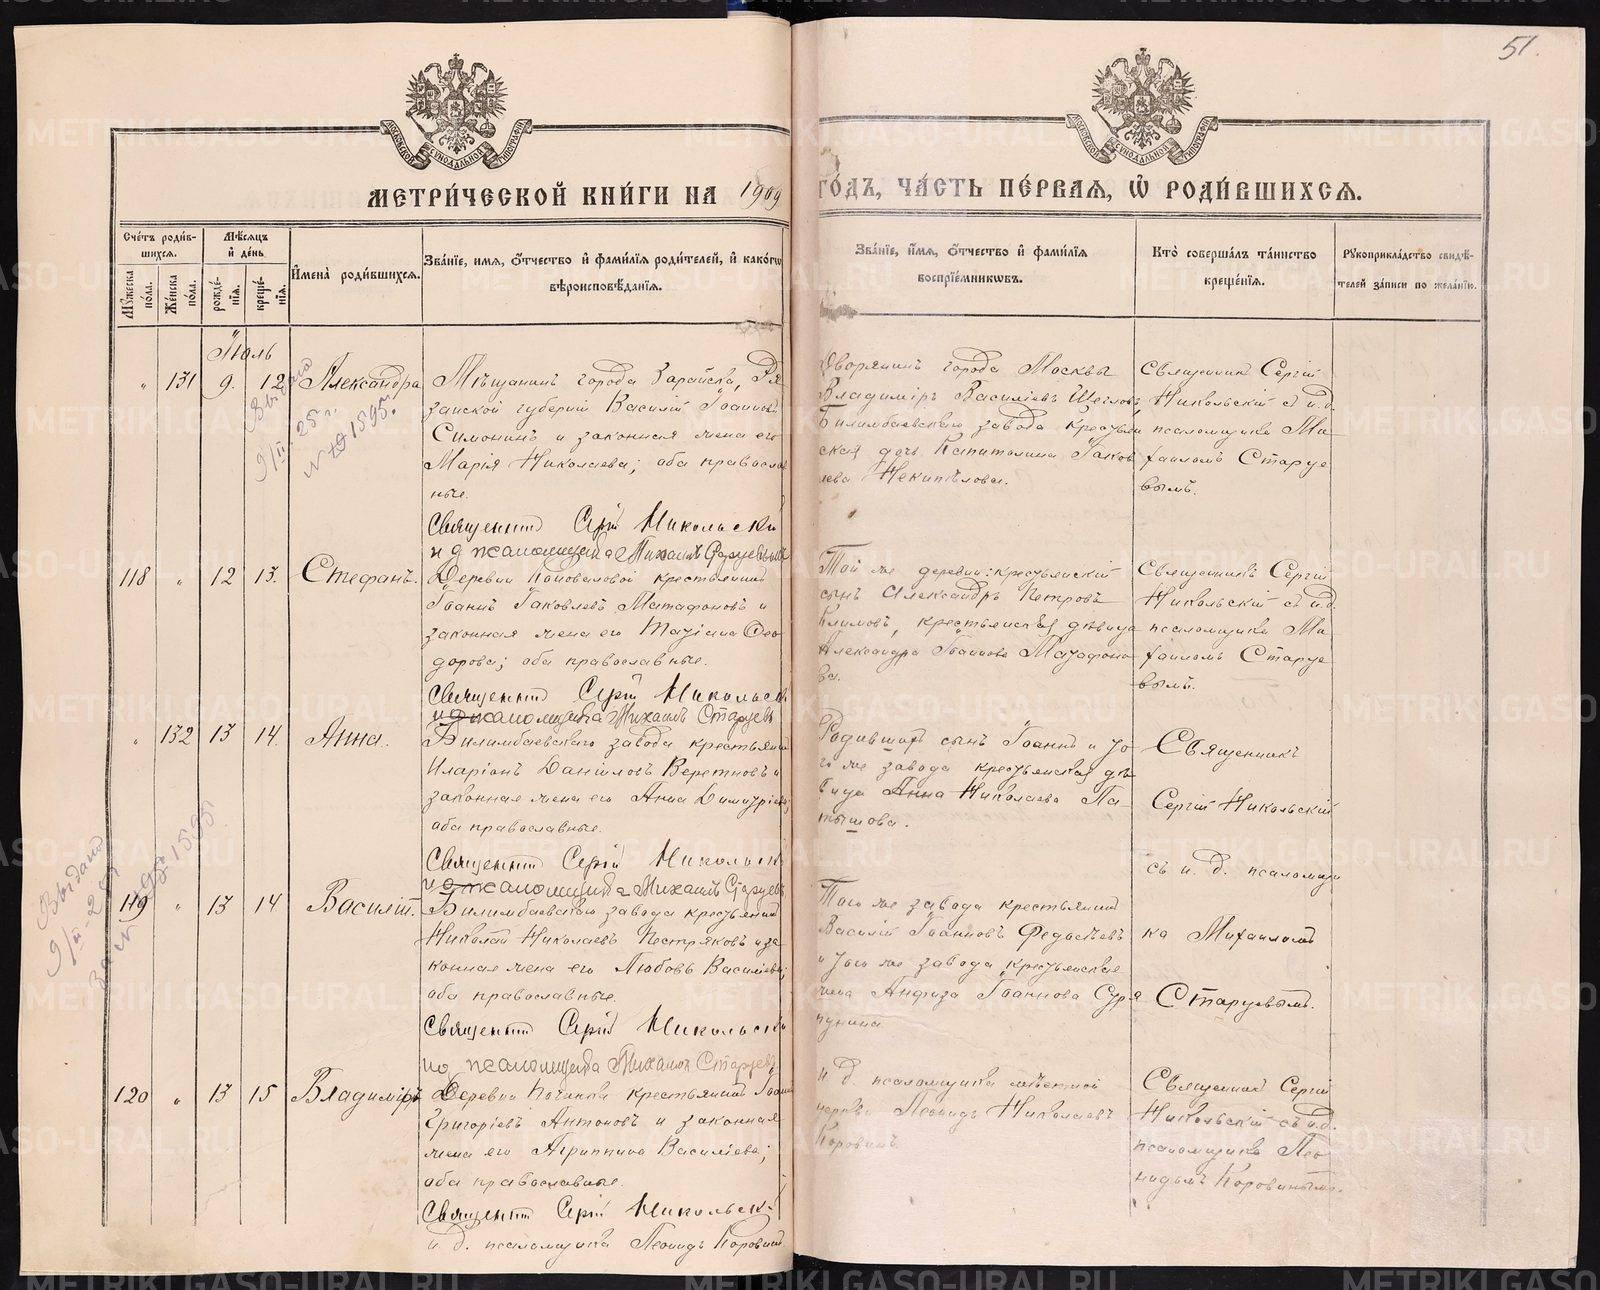 51.
МОСКОВСКОЙ СѴНОДАЛЬНОЙ ТИПОГРАФІИ
МОСКОВСКОЙ СѴНОДАЛЬНОЙ ТИПОГРАФІИ
МЕТРИ́ЧЕСКОЙ КНИ́ГИ НА 1909
ГО́ДЪ, ЧА́СТЬ ПЕ́РВАЯ, Ѽ РОДИ́ВШИХСЯ.
Сче́тъ роди́в-
шихся.
Мѣ́сяцъ
и҆ де́нь
Мꙋ́жеска по́ла.
Же́нска по́ла.
рожде́-нїя.
креще́-нїя.
И҆мена̀ роди́вшихся.
Зва́нїе, и́мя, ѻ҆́тчество и҆ фами́лїя роди́телей, и҆ како́гѡ
вѣроисповѣ́данїя.
Зва́нїе, и́мя, ѻ҆́тчество и҆ фами́лїя
воспрїе́мникѡвъ.
Кто̀ соверша́лъ та́инство
креще́нїя.
Рꙋкоприкла́дство свидѣ́-
телей за́писи по жела́нїю.
Іюль
" 131 9. 12 Александра
Мѣщанинъ города Зарайска, Ря
занской губерніи Василій Іоанновъ
Симонинъ и законная жена его
Марія Николаева; оба православ
ные.
Священникъ Сергій Никольскій
и д псаломщика Михаилъ Старцевъ
Дворянинъ города Москвы
Владиміръ Василіевъ Щегловъ,
Билимбаевскаго завода крестьян
ская дочь Капитолина Іаков
лева Некипѣлова.
Священникъ Сергій
Никольскій съ и.д.
псаломщика Ми
хаиломъ Старце
вымъ.
Выдано
9/II-25 г.
№ 1595.
118 " 12 13. Стефанъ.
Деревни Коноваловой крестьянинъ
Іоаннъ Іаковлевъ Матафоновъ и
законная жена его Татіана Ѳео
дорова; оба православные.
Священникъ Сергій Никольскій
и д псаломщика Михаилъ Старцевъ
Той же деревни: крестьянскій
сынъ Александръ Петровъ
Климовъ, крестьянская дѣвица
Александра Іоаннова Матафоно
ва.
Священникъ Сергій
Никольскій съ и.д.
псаломщика Ми
хаиломъ Старце
вымъ.
" 132 13 14. Анна.
Билимбаевскаго завода крестьянинъ
Иларіонъ Даніиловъ Веретновъ и
законная жена его Анна Димитріева;
оба православные.
Священникъ Сергій Никольскій
и д псаломщика Михаилъ Старцевъ
сынъ Іоаннъ и то
го же завода крестьянская дѣ
вица Анна Николаева Па
тышова.
Священникъ
Сергій Никольскій
съ и. д. псаломщи
ка Михаиломъ
Старцевымъ.
Выдано
9/II-25 г
за № 1595
119 " 13 14 Василій.
Билимбаевскаго завода крестьянинъ
Николай Николаевъ Пестряковъ и за
конная жена его Любовь Василіева;
оба православные.
Священникъ Сергій Никольскій
и д. псаломщика Михаилъ Старцевъ
Того же завода крестьянинъ
Василій Іоанновъ Федосѣевъ
и того же завода крестьянская
жена Анфиза Іоаннова
120 " 13 15 Владиміръ
Деревни Починка крестьянинъ Іоаннъ
Григоріевъ Антоновъ и законная
жена его Агриппина Василіева;
оба православные.
Священникъ Сергій Никольскій
и. д. псаломщика Леонидъ Коровинъ
и д. псаломщика мѣстной
церкви Леонидъ Николаевъ
Коровинъ
Священникъ Сергій
Никольскій съ и.д.
псаломщика Лео
нидомъ Коровинымъ.
METRIKI.GASO-URAL.RU